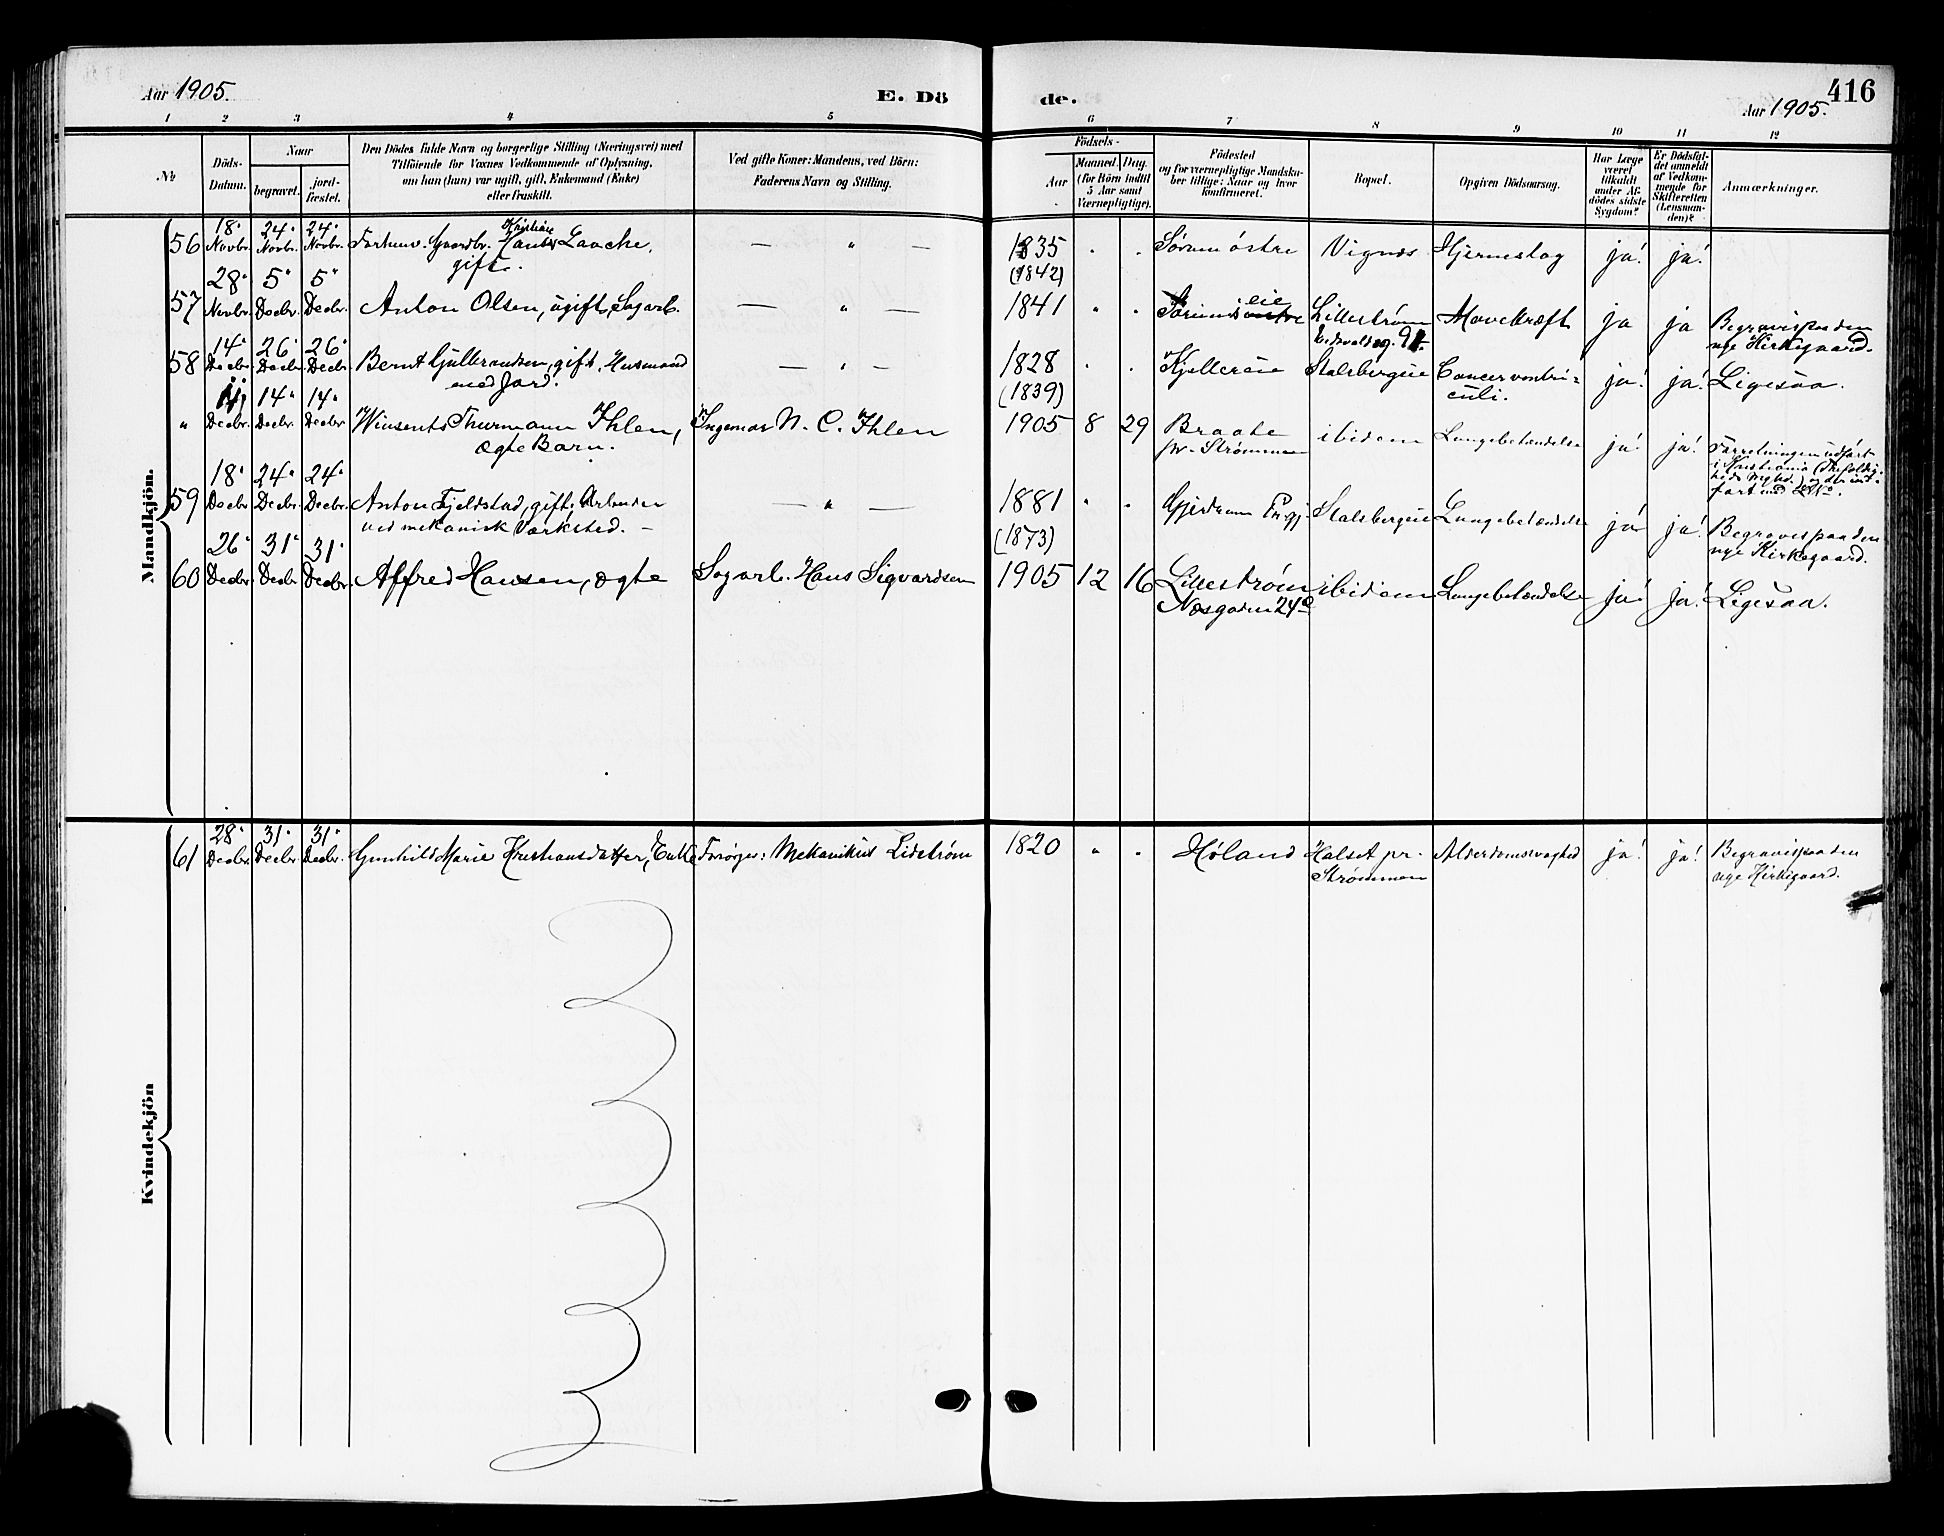 Aar 1905.
E. Dö
de.
416
Aar 1905.
1 2 3 4 5 6 7 8 9 10 11 12
No
Döds-
Datum.
Naar
begravet.
jord-
fæstet.
Den Dödes fulde Navn og borgerlige Stilling (Næringsvei) med
Tilföiende for Voxnes Vedkommende af Oplysning,
om han (hun) var ugift, gift, Enkemand (Enke)
eller fraskilt.
Ved gifte Koner: Mandens, ved Börn:
Faderens Navn og Stilling.
Födsels-
Aar
Maaned. Dag.
(for Börn indtil
5 Aar samt
Værnepligtige).
Födested
og for værnepligtige Mandska-
ber tillige: Naar og hvor
konfirmeret.
Bopæl.
Opgiven Dödsaarsag.
Har Læge
været
tilkaldt
under Af-
dödes sidste
Sygdom?
Er Dödsfal-
det anmeldt
af Vedkom-
mende for
Skifteretten
(Lensman-
den)?
Anmærkninger.
Mandkjön.
56 18. Novbr. 24. Novbr. 24. Novbr. Forhenv. Gaardbr. Kristian Laache, gift. — " — 1835 (1842) " " Sörum östre Vignæs Hjerneslag ja! ja!
57 28. Novbr. 5. Decbr. 5. Decbr. Anton Olsen, ugift, Sagarb. — " — 1841 " " Sörum eie Lillestrøm Eidsvoldsg. Mavekræft ja ja Begraves paa den nye Kirkegaard.
58 14. Decbr. 26. Decbr. 26. Decbr. Bernt Gulbrandsen, gift, Husmand med Jord. — " — 1828 (1839) " " Kjellereie Stalsbergeie Cancer ventriculi. ja! ja! Ligesaa.
" Decbr. 14. Decbr. 14. Decbr. Winsents Thurmann Ihlen, ægte Barn. Ingemar N. C. Ihlen 1905 8 29 Braate pr. Strømmen ibidem Lungebetændelse ja! ja! Forretningen udført i Kristiania
59 18. Decbr. 24. Decbr. 24. Decbr. Anton Fjeldstad, gift, Arbeider ved mekanisk Værksted. — — " — 1881 (1873) " " Gjerdrum Prgj. Stalsbergeie Lungebetændelse ja! ja! Begraves paa den nye Kirkegaard.
60 26. Decbr. 31. Decbr. 31. Decbr. Alfred Hansen, ægte Sagarb. Hans Sigvardsen 1905 12 16 Lillestrøm Næsgaden 24 ibidem Lungebetændelse ja! ja! Ligesaa.
Kvindekjön
61 28. Decbr. 31. Decbr. 31. Decbr. Gunhild Marie Kristiansdatter, Enke Forsørges: Mekanikus Lidstrøm 1820 " " Høland Halset pr. Strømmen Alderdomssvaghed ja! ja! Begraves paa den nye Kirkegaard.